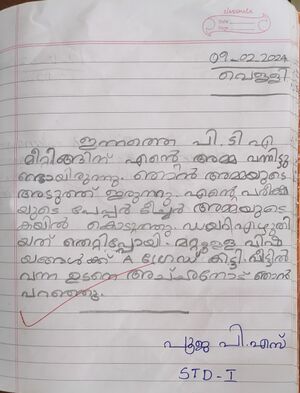 classmate
Date
Page
09-02-2024
വെള്ളി
ഇന്നത്തെ പി.ടി എ
മീറ്റിങ്ങിന് എൻ്റെ അമ്മ വന്നിട്ടു
ണ്ടായിരുന്നു. ഞാൻ അമ്മയുടെ
അടുത്ത് ഇരുന്നു. എൻ്റെ പരീക്ഷ
യുടെ പേപ്പർ ടീച്ചർ അമ്മയുടെ
കയിൽ കൊടുത്തു. ഡയറിഎഴുതി
യത് തെറ്റിപ്പോയി. മറ്റുള്ള വിഷ
യങ്ങൾക്ക് A ഗ്രേഡ് കിട്ടി.
വന്ന ഉടനെ അച്ഛനോട് ഞാൻ
പറഞ്ഞു.
പൂജ പി.എസ്
STD-I